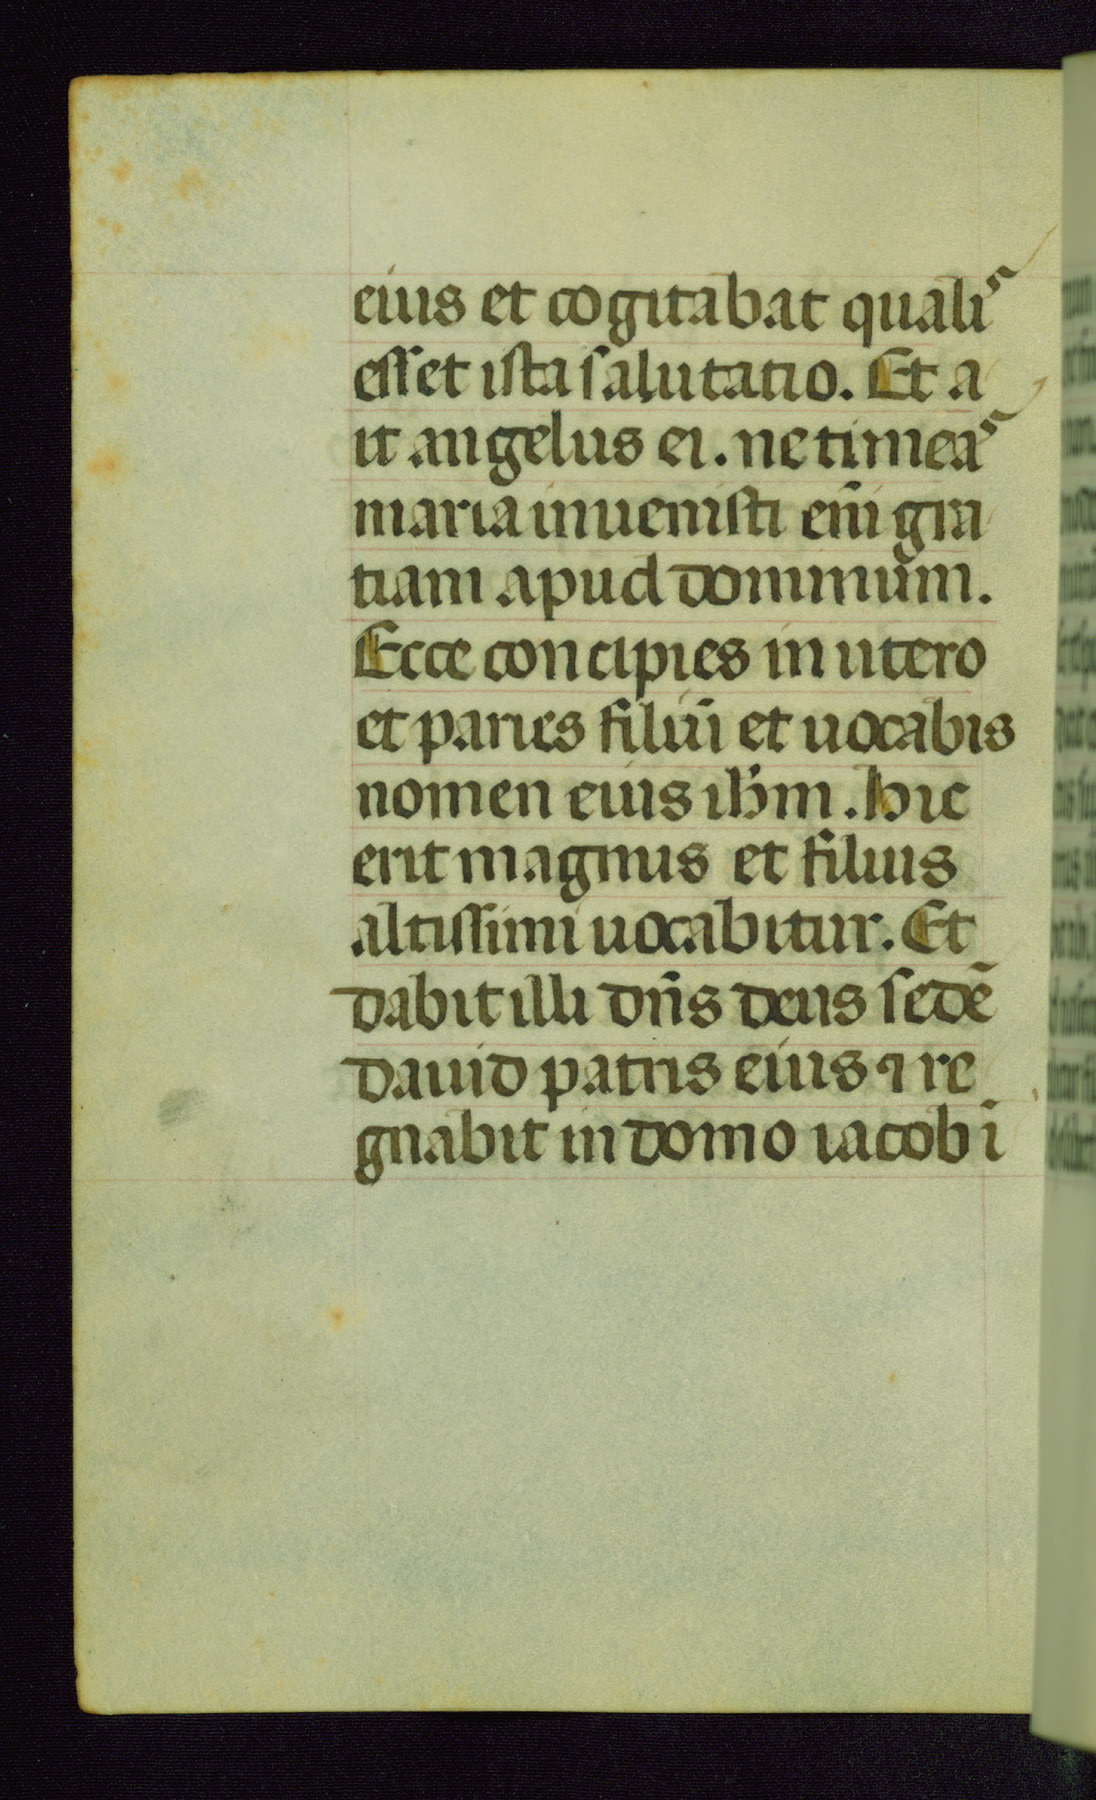 eius et cogitabat qualis
esset ista salutatio. Et a
it angelus ei. ne timeas
maria inuenisti eni̅ gra
tiam apud dominum.
Ecce concipies in utero
et paries filiu̅ et uocabis
nomen eius ih̅m. hic
erit magnus et filius
altissimi uocabitur. Et
dabit illi dn̅s deus sede̅
dauid patris eius ⁊ re
gnabit in domo iacob i̅